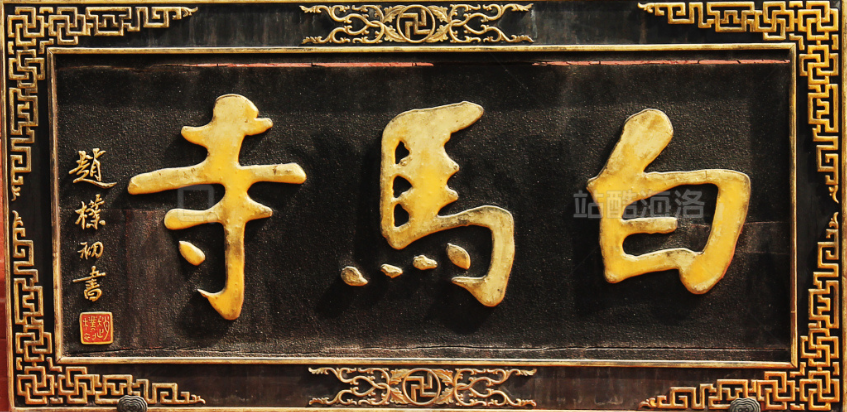 白馬寺
趙樸初書
站酷海洛